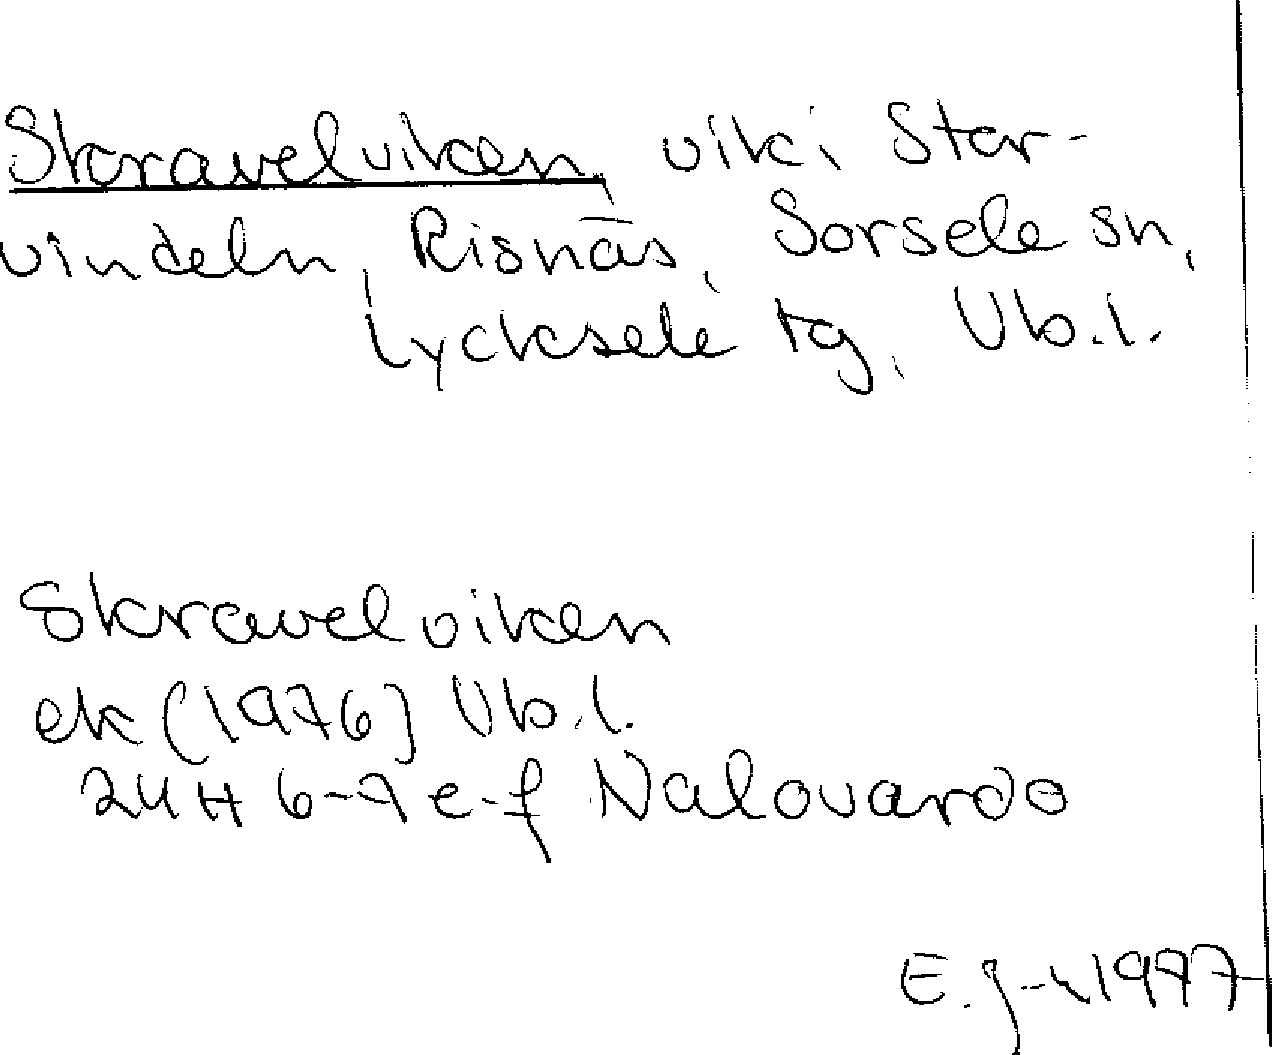 Skravelviken, vik i Stor-
vindeln, Risnäs, Sorsele sn,
Lycksele tg, Vb.l.
Skravelviken
ek (1976) Vb.l.
24H 6-7 e-f Nalovardo
E.J-n 1997